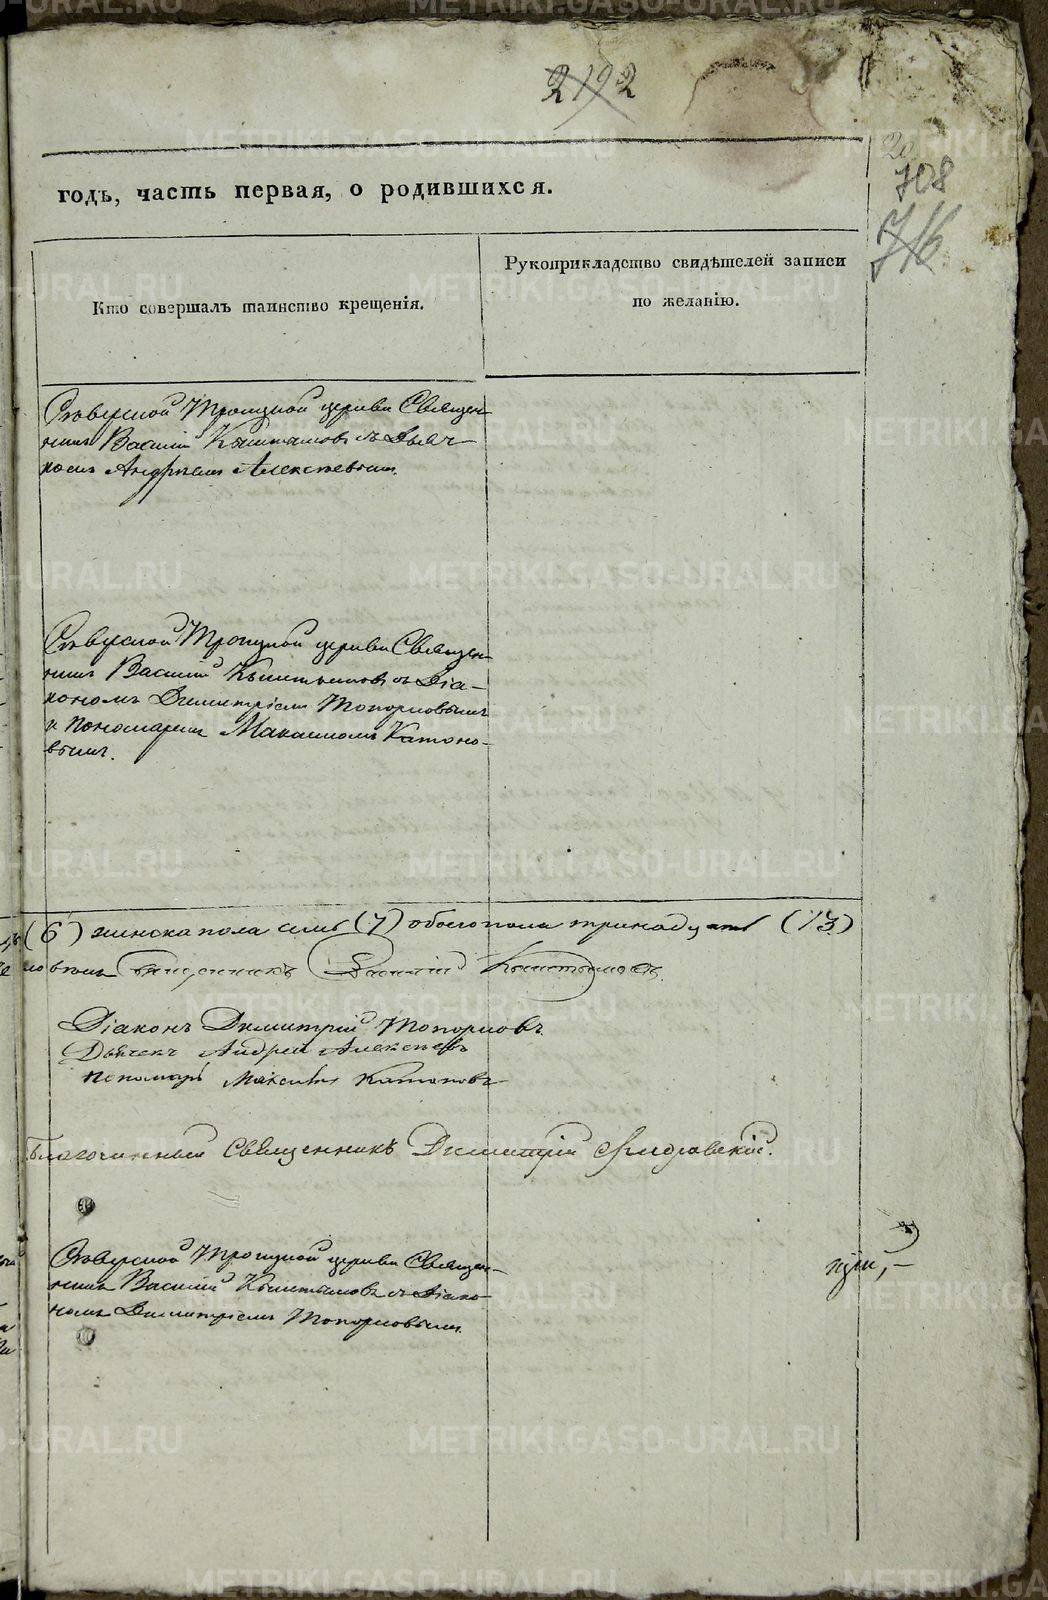 2192
20
708
716
годъ, часть первая, о родившихся.
Кто совершалъ таинство крещенія.
Рукоприкладство свидѣтелей записи
по желанію.
Сѣверской Троицкой церкви Священ-
никъ Василій Кыштымовъ съ Дьяч-
комъ Андреемъ Алексѣевымъ.
Сѣверской Троицкой церкви Священ-
никъ Василій Кыштымовъ съ Діа-
кономъ Димитріемъ Топорковымъ
и Пономаремъ Максимомъ Катоно-
вымъ.
(6) женска пола семь (7) обоего пола тринадцать (13)
Священникъ Василій Кыштымовъ.
Діаконъ Димитрій Топорковъ
Дьячекъ Андрей Алексѣевъ
Пономарь Максимъ Катоновъ
Благочинный Священникъ Димитрій
Сѣверской Троицкой церкви Священ-
никъ Василій Кыштымовъ съ Діако-
номъ Димитріемъ Топорковымъ.
METRIKI.GASO-URAL.RU